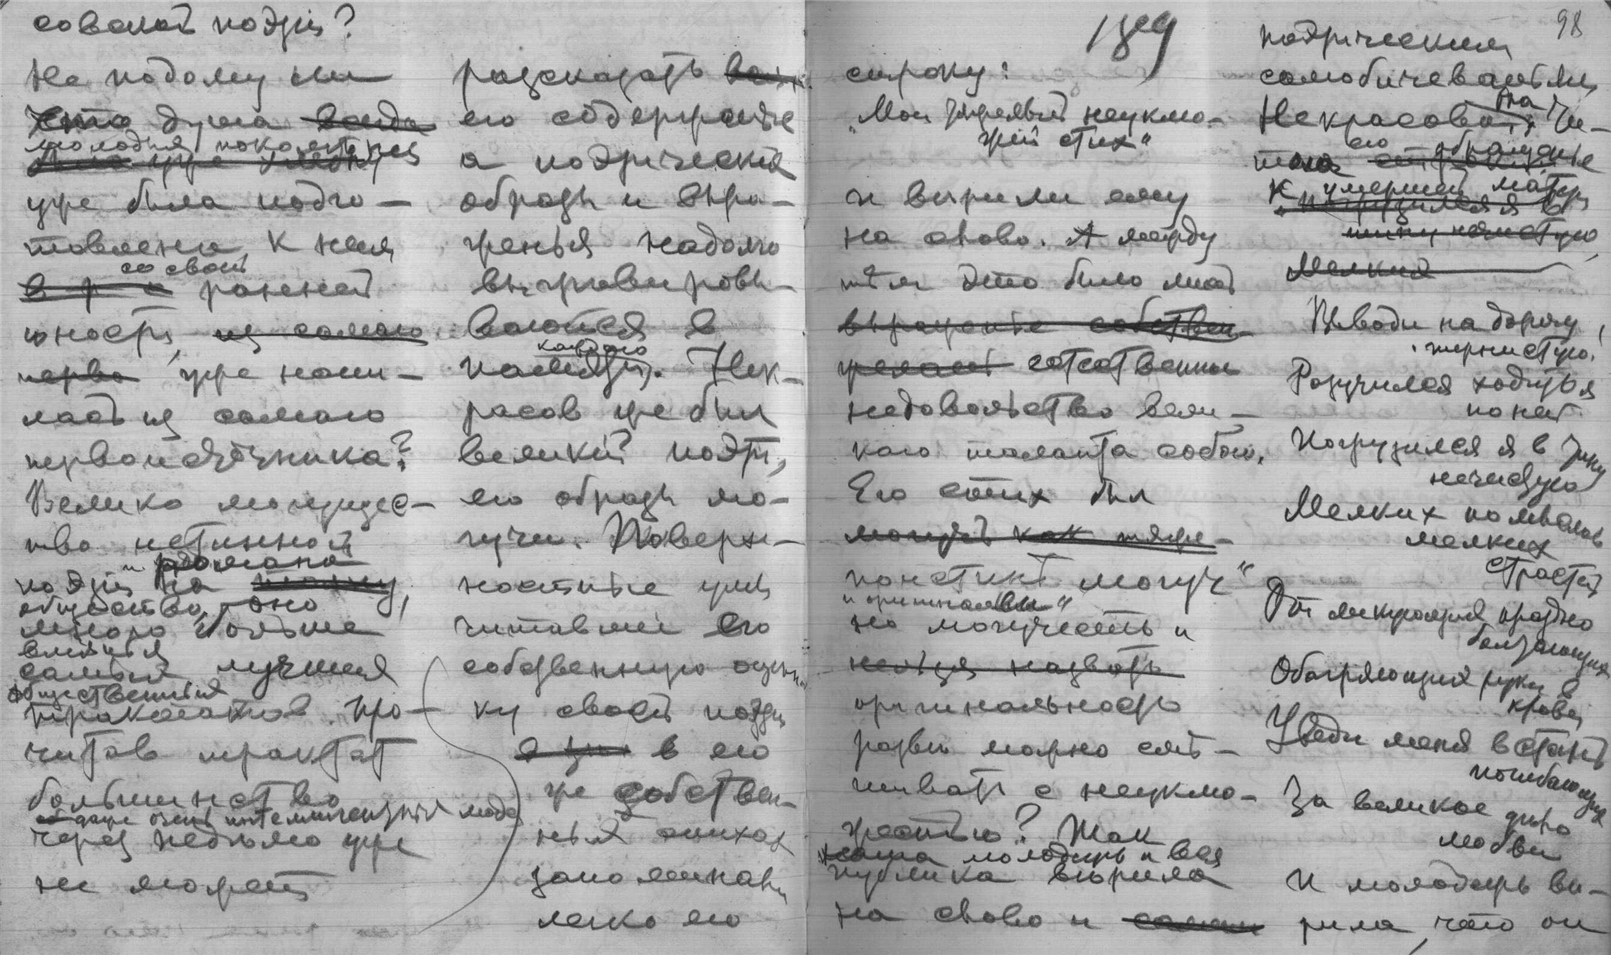 совсем поэзiи?
Не потому ли
что душа всегда
молодыя поколенiя
уже была подго-
товлена к ней
со своей
ранней
юности из самого
перво уже напи-
лась из самого
первоисточника?
Велико могущес-
тво истинной
и романа
поэзiи на
общество, оно
много больше
влiянiя
самыя лучшiя
общественныя
трактатов. Про-
читав трактат
большинство
даже очень интеллигентных людей
через неделю уже
не может
разсказать
его содержанiе
а поэтическiя
образы и выра-
женья надолго
выгравировы-
ваются в
каждого
памяти. Нек-
расов уже был
великiй поэт,
его образы мо-
гучи. Поверх-
ностные умы
читавшiе его
собственную оцен-
ку своей поэзiи
в его
же собствен-
ных стихах
запоминали
легко его
189
строку:
"Мой угрюмый неуклю-
жiй стих"
и верили ему
на слово. А между
тем это было лишь
выраженiе собствен-
собственное
недовольство вели-
каго таланта собою.
Его стих был
могучъ как тяже-
поистине могуч
и оригинален
но могучесть и
нельзя назвать
оригинальность
разве можно сме-
шивать с неуклю-
жестью? Так
наша молодежь и вся
публика верила
на слово и
98
поэтическим
самобичеваньям
Некрасова на Чи-
тая его обращенье
к умершей матери
погрузился я в
тину нечистую
Мелких
Выводи на дорогу
тернистую!
Разучился ходить я
по ней
Погрузился я в тину
нечистую
Мелких помыслов
мелких
страстей
От ликующих праздно
болтающих
Обагряющих руки в
крови
Уведи меня в стан
погибающих
За великое дело
любви
И молодежь ве-
рила, что он